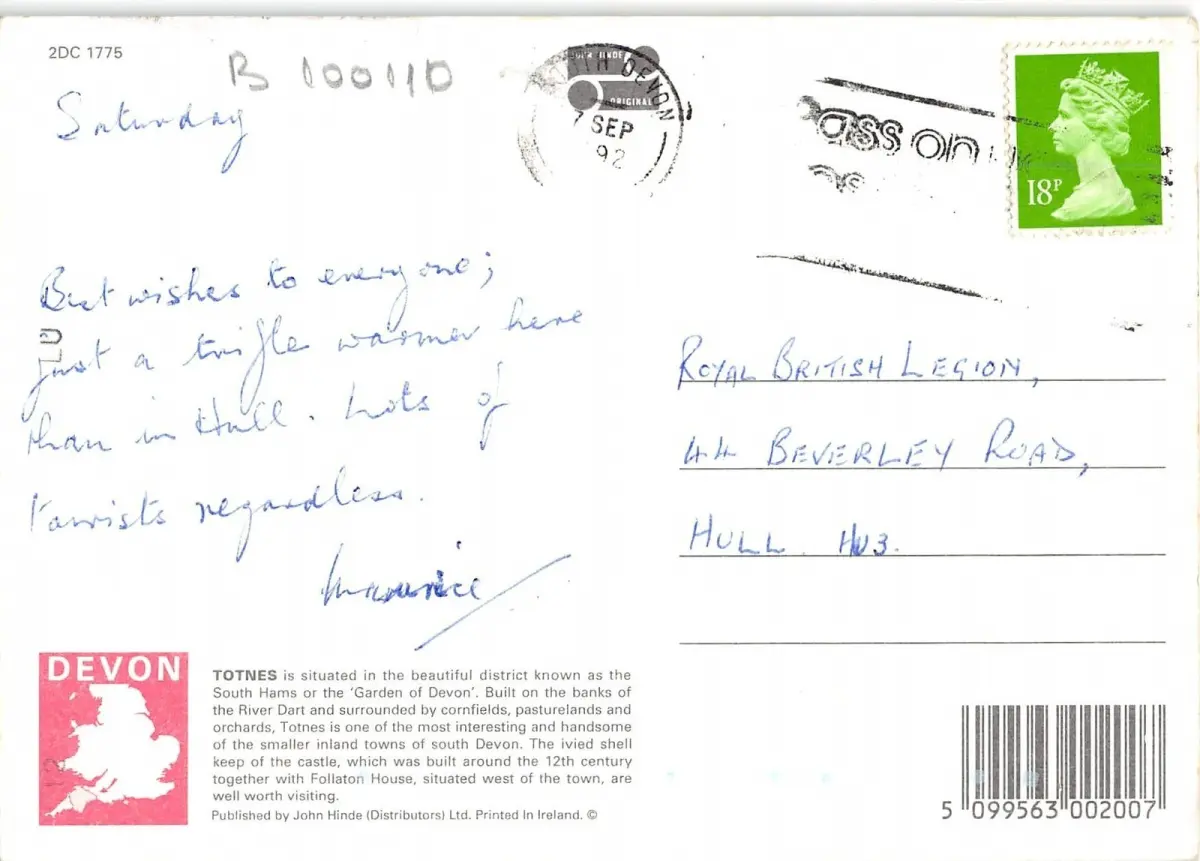 2DC 1775
B 100110
JOHN HINDE
ORIGINAL
DEVON
7 SEP
92
ass on
18P
Saturday
Best wishes to everyone;
just a trifle warmer here
than in Hull. Lots of
tourists regardless.
Maurice
ROYAL BRITISH LEGION,
44 BEVERLEY ROAD,
HULL. HU3.
DEVON
TOTNES is situated in the beautiful district known as the
South Hams or the 'Garden of Devon'. Built on the banks of
the River Dart and surrounded by cornfields, pasturelands and
orchards, Totnes is one of the most interesting and handsome
of the smaller inland towns of south Devon. The ivied shell
keep of the castle, which was built around the 12th century
together with Follaton House, situated west of the town, are
well worth visiting.
Published by John Hinde (Distributors) Ltd. Printed In Ireland. ©
5 099563 002007